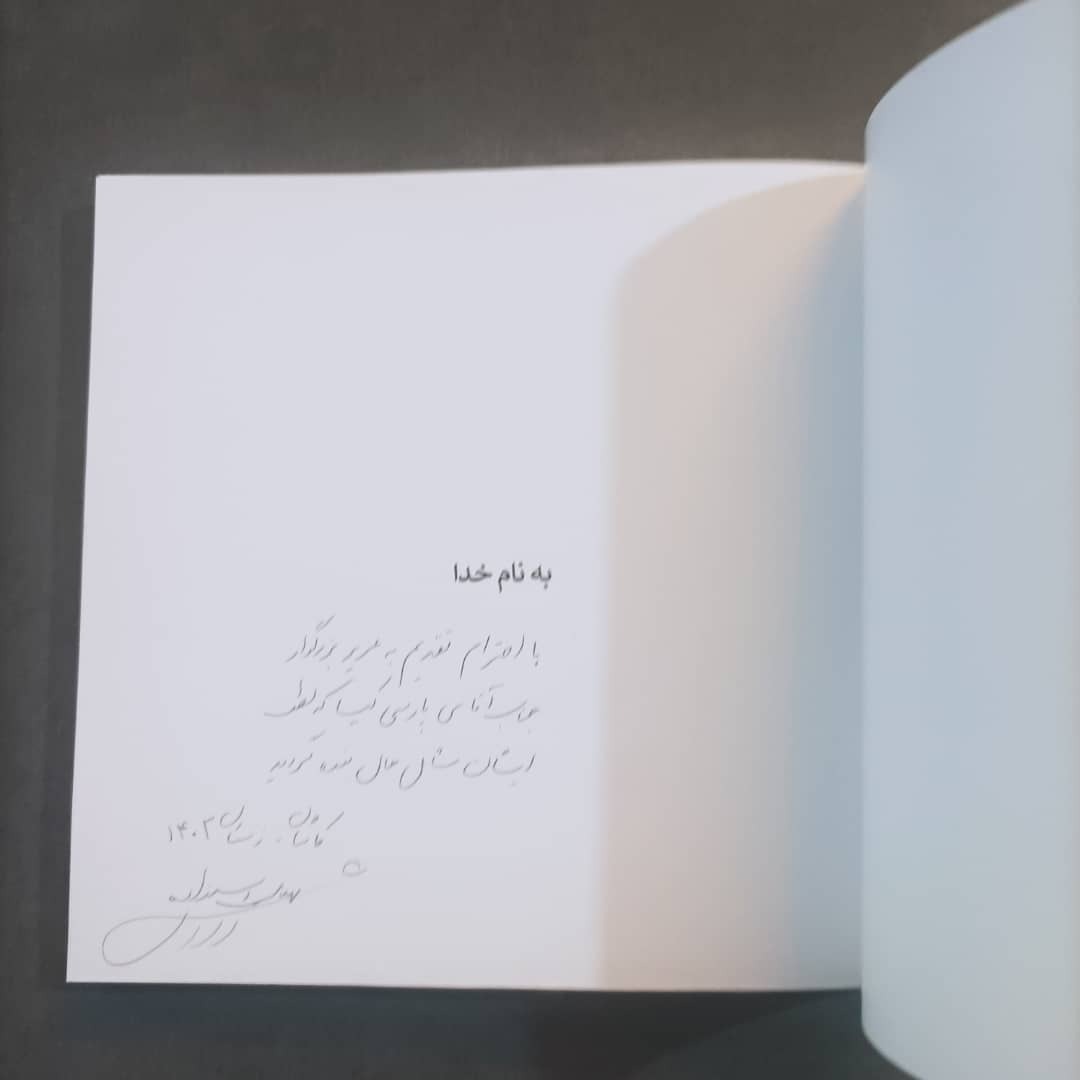 به نام خدا
با احترام تقدیم به عزیز بزرگوار
جناب آقای پارسی کیا که لطف
ایشان شامل حال بنده گردید
کاشان. زمستان ۱۴۰۲